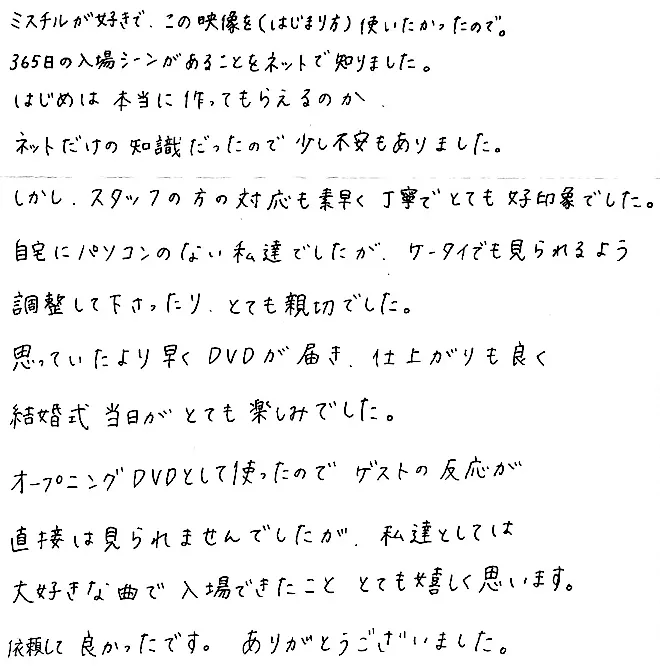 ミスチルが好きで、この映像を(はじまり方)使いたかったので。
365日の入場シーンがあることをネットで知りました。
はじめは 本当に作ってもらえるのか、
ネットだけの知識だったので少し不安もありました。
しかし、スタッフの方の対応も素早く丁寧でとても好印象でした。
自宅にパソコンのない私達でしたが、ケータイでも見られるよう
調整して下さったり、とても親切でした。
思っていたより早くDVDが届き、仕上がりも良く
結婚式当日がとても楽しみでした。
オープニングDVDとして使ったのでゲストの反応が
直接は見られませんでしたが、私達としては
大好きな曲で入場できたこととても嬉しく思います。
依頼して良かったです。 ありがとうございました。